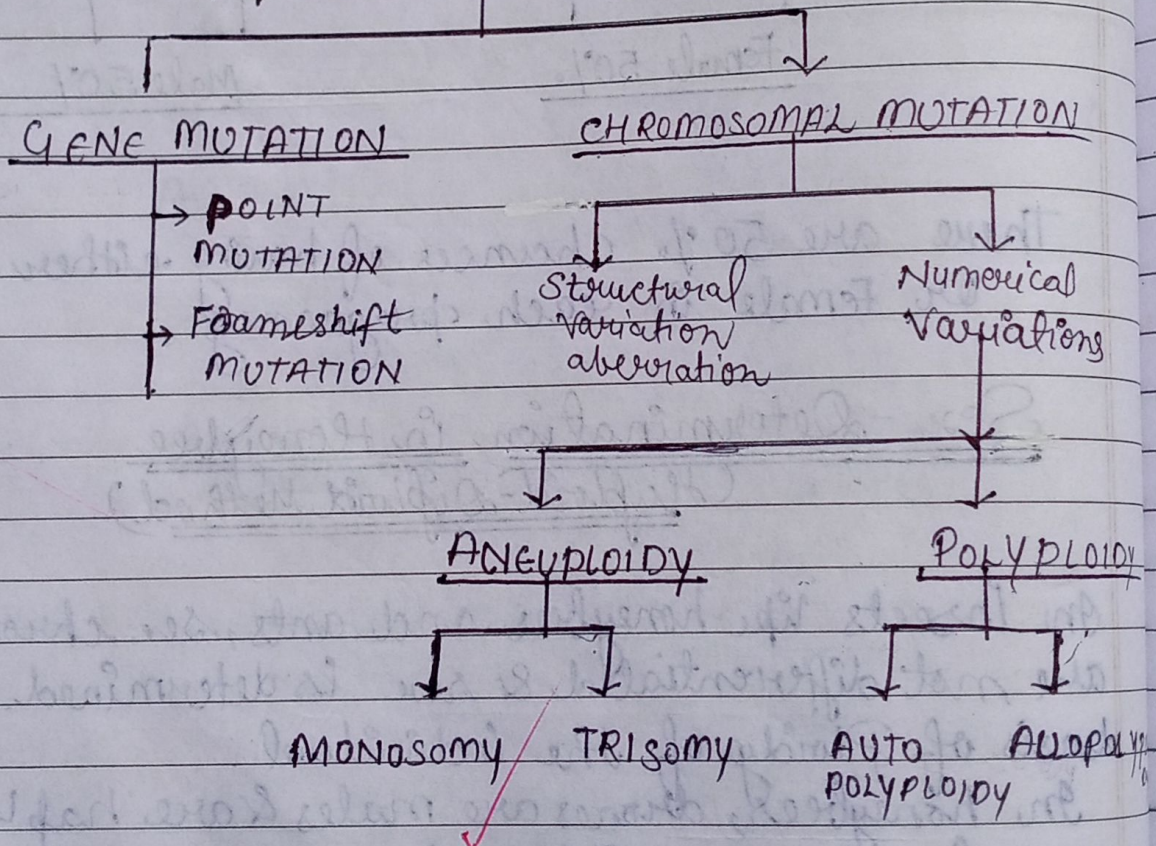 GENE MUTATION
CHROMOSOMAL MUTATION
→ POINT
MUTATION
→ Frameshift
MUTATION
Structural
variation
aberration
Numerical
Variations
ANEUPLOIDY
POLYPLOIDY
MONOSOMY
TRISOMY
AUTO
POLYPLOIDY
ALLOPOLY